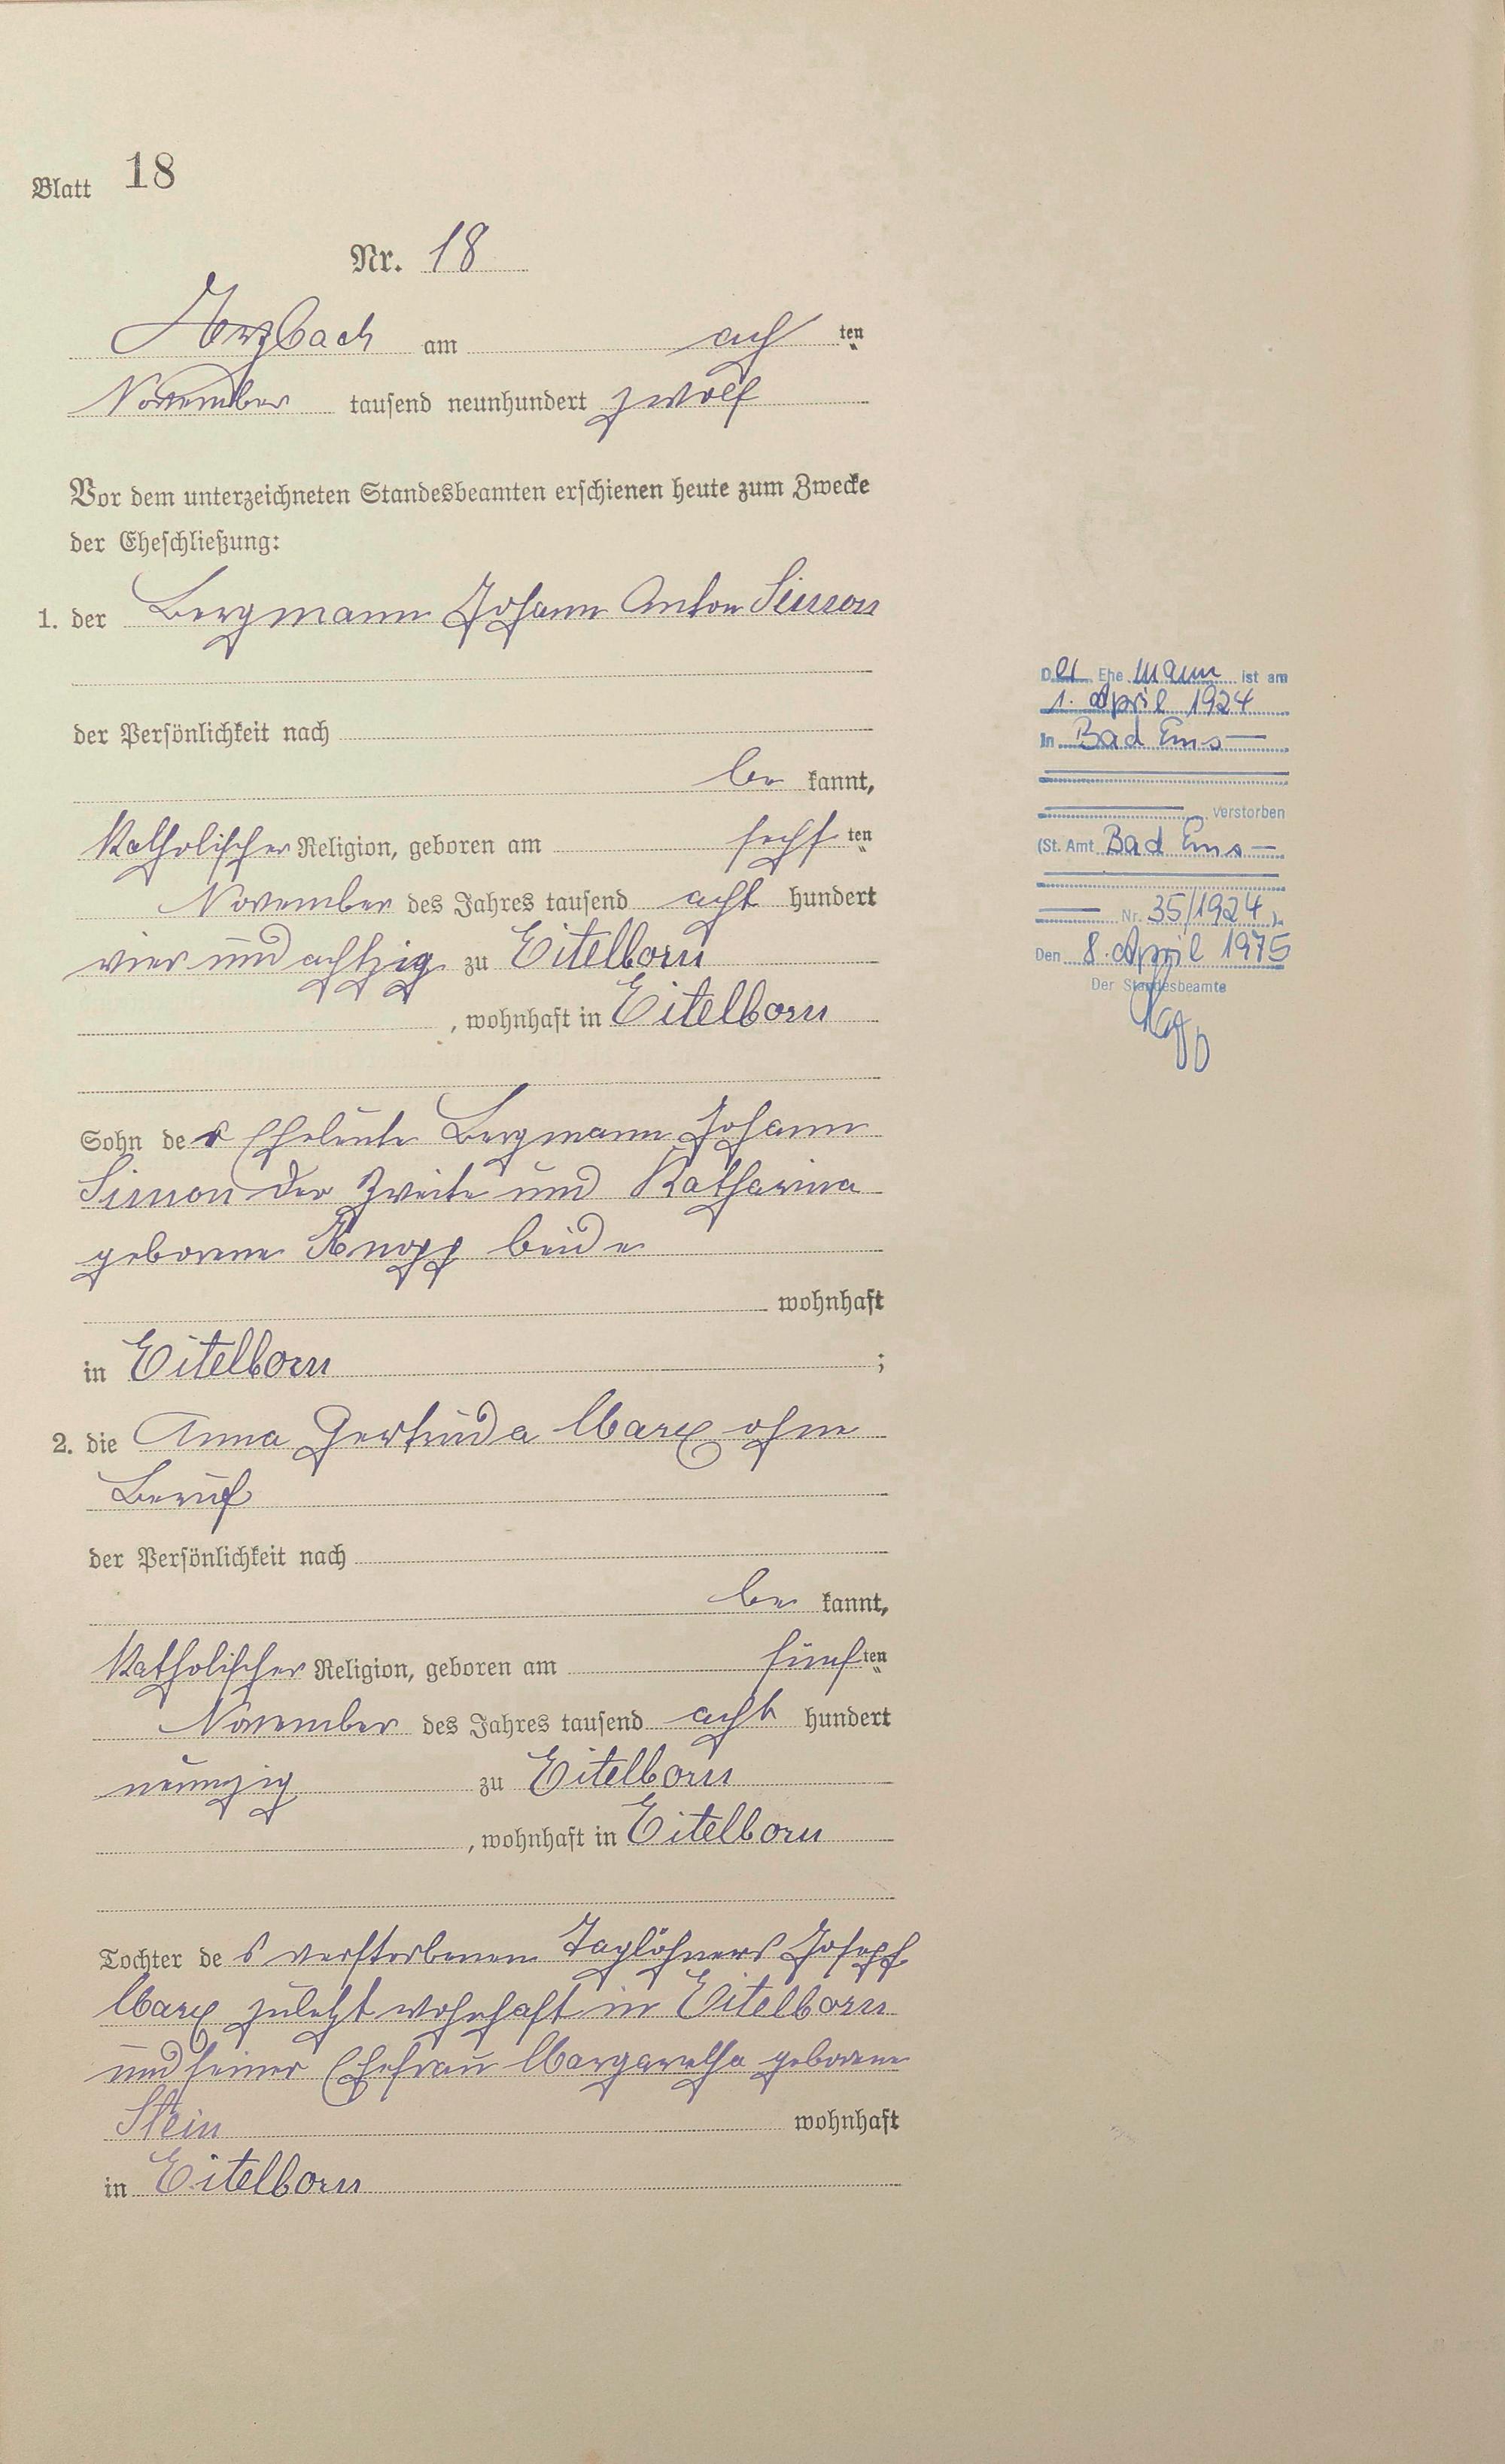 Blatt 18
Nr. 18
Arzbach am ach ten
November tausend neunhundert zwölf
Vor dem unterzeichneten Standesbeamten erschienen heute zum Zwecke
der Eheschließung:
1. der Bergmann Johann Anton Simon
der Persönlichkeit nach
be kannt,
Katholischer Religion, geboren am sechs ten
November des Jahres tausend acht hundert
vier und achtzig zu Eitelborn
, wohnhaft in Eitelborn
Sohn der Eheleute Bergmann Johann
Simon der Zweite und Katharina
geborene Knopp beide
wohnhaft
in Eitelborn ;
2. die Anna Gertruda Marx ohne
Beruf
der Persönlichkeit nach
be kannt,
Katholischer Religion, geboren am fünf ten
November des Jahres tausend acht hundert
neunzig zu Eitelborn
, wohnhaft in Eitelborn
Tochter des verstorbenen Taglöhners Joseph
Marx zuletzt wohnhaft in Eitelborn
und seiner Ehefrau Margaretha geborene
Stein wohnhaft
in Eitelborn
Der Ehe mann ist am
1. April 1924
in Bad Ems
verstorben
(St. Amt Bad Ems
Nr. 35/1924).
Den 8. April 1975
Der Standesbeamte